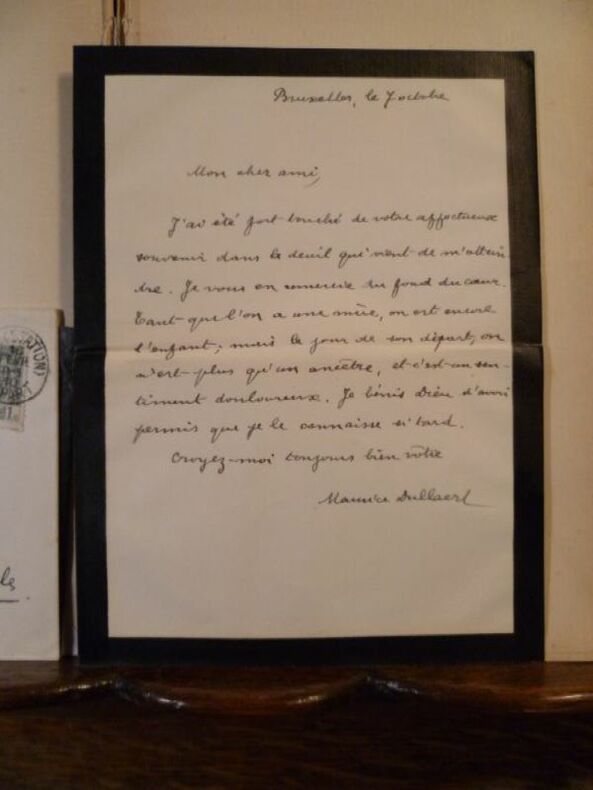 Bruxelles, le 7 octobre
Mon cher ami,
J'ai été fort touché de votre affectueux
souvenir dans le deuil qui vient de m'attein
dre. Je vous en remercie du fond du cœur.
Tant que l'on a une mère, on est encore
l'enfant; mais le jour de son départ, on
n'est plus qu'un ancêtre, et c'est un sen-
timent douloureux. Je bénis Dieu d'avoir
permis que je le connaisse si tard.
Croyez-moi toujours bien vôtre
Maurice Dullaert